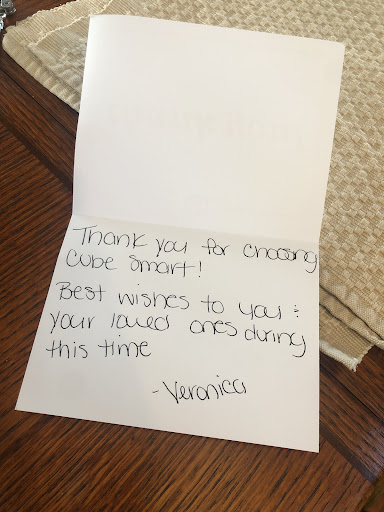 Thank you for choosing
Cube Smart!
Best wishes to you &
your loved ones during
this time
-Veronica